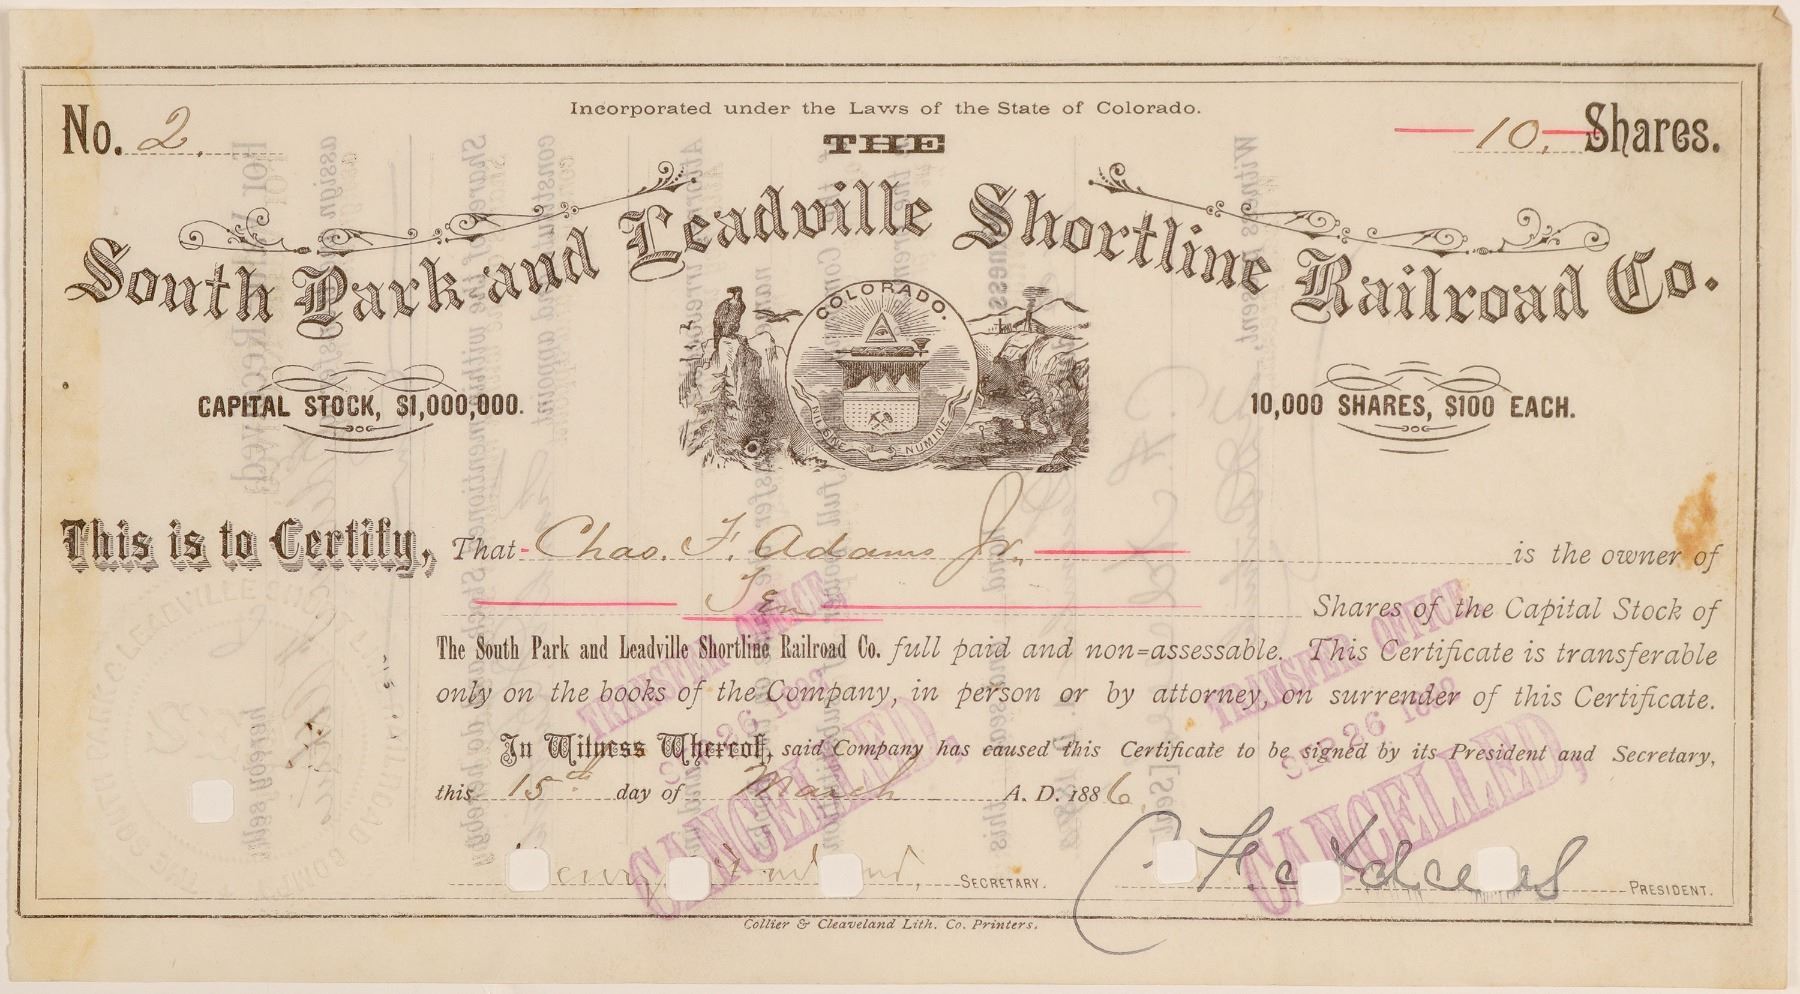 Incorporated under the Laws of the State of Colorado.
No. 2. 10. Shares.
THE
South Park and Leadville Shortline Railroad Co.
COLORADO.
NIL SINE NUMINE
CAPITAL STOCK, $1,000,000.
10,000 SHARES, $100 EACH.
This is to Certify, That Chas. F. Adams Jr. is the owner of
Ten Shares of the Capital Stock of
The South Park and Leadville Shortline Railroad Co. full paid and non=assessable. This Certificate is transferable
only on the books of the Company, in person or by attorney, on surrender of this Certificate.
In Witness Whereof, said Company has caused this Certificate to be signed by its President and Secretary,
this 15th day of March A. D. 1886.
SECRETARY.
C. F. Adams PRESIDENT.
Collier & Cleaveland Lith. Co. Printers.
TRANSFER OFFICE
SEP 26
CANCELLED,
TRANSFER OFFICE
SEP 26
CANCELLED,